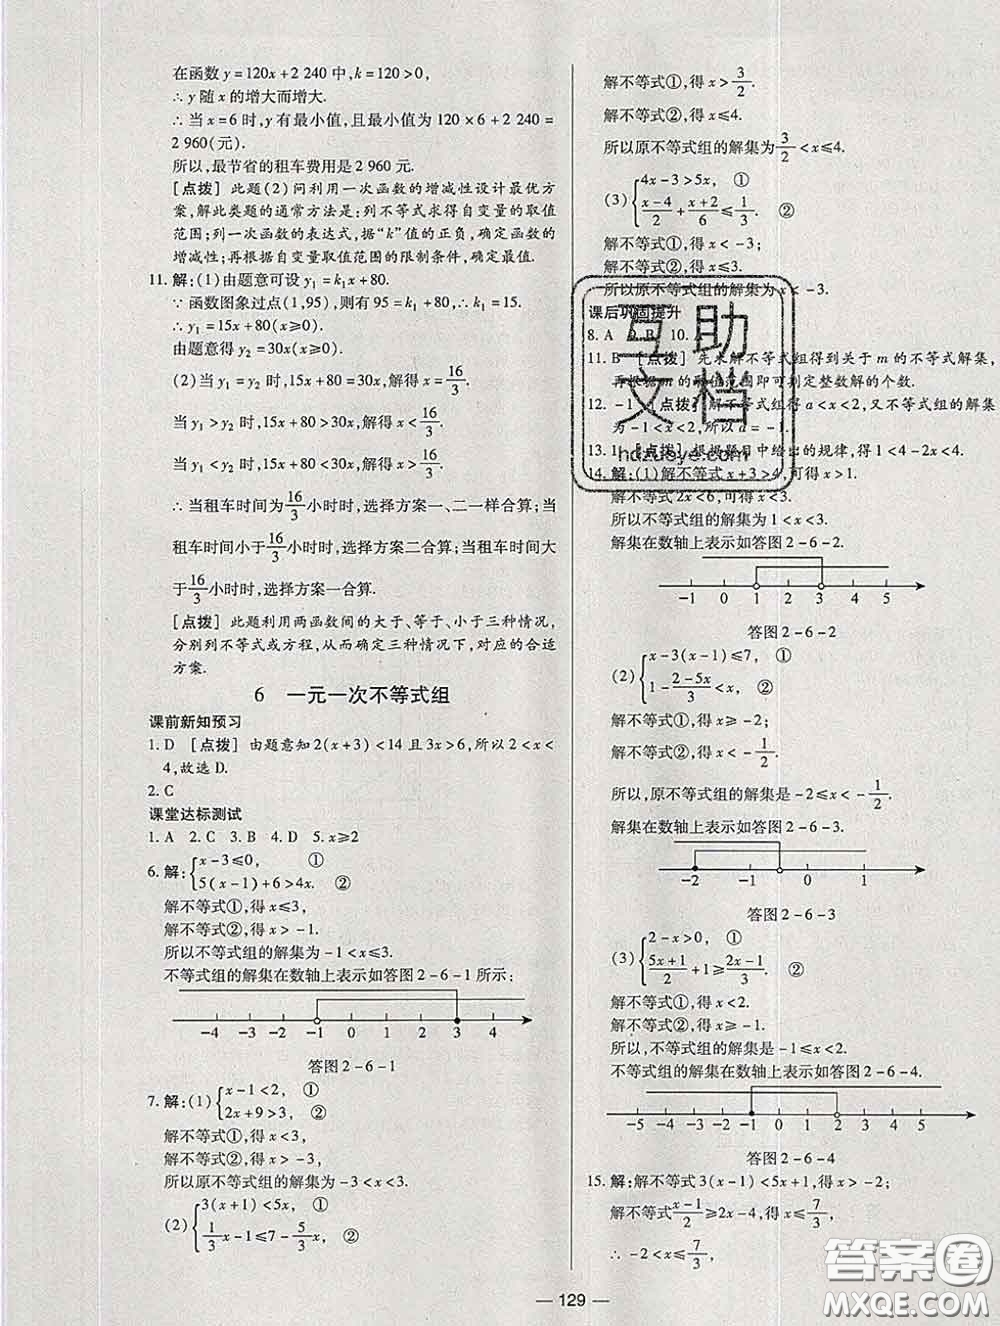 在函数 y=120x+2 240 中,k=120>0,
∴ y 随 x 的增大而增大.
∴ 当 x=6 时,y 有最小值,且最小值为 120×6+2 240=
2 960(元).
所以,最节省的租车费用是 2 960 元.
[点拨] 此题(2)问利用一次函数的增减性设计最优方
案,解此类题的通常方法是:列不等式求得自变量的取值
范围;列一次函数的表达式,据“k”值的正负,确定函数的
增减性;再根据自变量取值范围的限制条件,确定最值.
11. 解:(1)由题意可设 y₁=k₁x+80.
∵ 函数图象过点(1,95),则有 95=k₁+80,∴ k₁=15.
∴ y₁=15x+80(x≥0).
由题意得 y₂=30x(x≥0).
(2)当 y₁=y₂ 时,15x+80=30x,解得 x=16/3;
当 y₁>y₂ 时,15x+80>30x,解得 x<16/3;
当 y₁<y₂ 时,15x+80<30x,解得 x>16/3.
∴ 当租车时间为16/3小时时,选择方案一、二一样合算;当
租车时间小于16/3小时时,选择方案二合算;当租车时间大
于16/3小时时,选择方案一合算.
[点拨] 此题利用两函数间的大于、等于、小于三种情况,
分别列不等式或方程,从而确定三种情况下,对应的合适
方案.
6 一元一次不等式组
课前新知预习
1. D [点拨] 由题意知 2(x+3)<14 且 3x>6,所以 2<x<
4,故选 D.
2. C
课堂达标测试
1. A 2. C 3. B 4. D 5. x≥2
6. 解:{x-3≤0, ①
5(x-1)+6>4x. ②
解不等式①,得 x≤3,
解不等式②,得 x>-1.
所以不等式组的解集为 -1<x≤3.
不等式组的解集在数轴上表示如答图 2-6-1 所示:
-4 -3 -2 -1 0 1 2 3 4
答图 2-6-1
7. 解:(1){x-1<2, ①
2x+9>3, ②
解不等式①,得 x<3,
解不等式②,得 x>-3,
所以原不等式组的解集为 -3<x<3.
(2){3(x+1)<5x, ①
1/3x-1≤7-5/3x, ②
解不等式①,得 x>3/2.
解不等式②,得 x≤4.
所以原不等式组的解集为3/2<x≤4.
(3){4x-3>5x, ①
(x-4)/2+(x+2)/6≤1/3. ②
解不等式①,得 x<-3;
解不等式②,得 x≤3.
所以原不等式组的解集为 x<-3.
课后巩固提升
8. A 9. B 10.
11. B [点拨] 先求解不等式组得到关于 m 的不等式解集,
再根据 m 的取值范围即可判定整数解的个数.
12. -1 [点拨] 解不等式组得 a<x<2,又不等式组的解集
为 -1<x<2,所以 a=-1.
13. 1 [点拨] 根据题目中给出的规律,得 1<4-2x<4.
14. 解:(1)解不等式 x+3>4,可得 x>1.
解不等式 2x<6,可得 x<3.
所以不等式组的解集为 1<x<3.
解集在数轴上表示如答图 2-6-2.
-1 0 1 2 3 4 5
答图 2-6-2
(2){x-3(x-1)≤7, ①
1-(2-5x)/3<x, ②
解不等式①,得 x≥-2;
解不等式②,得 x<-1/2.
所以,原不等式组的解集是 -2≤x<-1/2.
解集在数轴上表示如答图 2-6-3.
-2 -1 0 1
答图 2-6-3
(3){2-x>0, ①
(5x+1)/2+1≥(2x-1)/3. ②
解不等式①,得 x<2.
解不等式②,得 x≥-1.
所以,不等式组的解集是 -1≤x<2.
不等式组的解集在数轴上表示如答图 2-6-4.
-5 -4 -3 -2 -1 0 1 2 3 4 5
答图 2-6-4
15. 解:解不等式 3(x-1)<5x+1,得 x>-2;
解不等式(x-1)/2≥2x-4,得 x≤7/3,
∴ -2<x≤7/3,
— 129 —
互助
文档
hdzuoye.com
答案圈
MXQE.COM